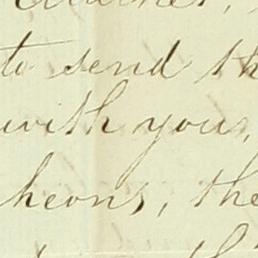 to send th
with your,
heons, the